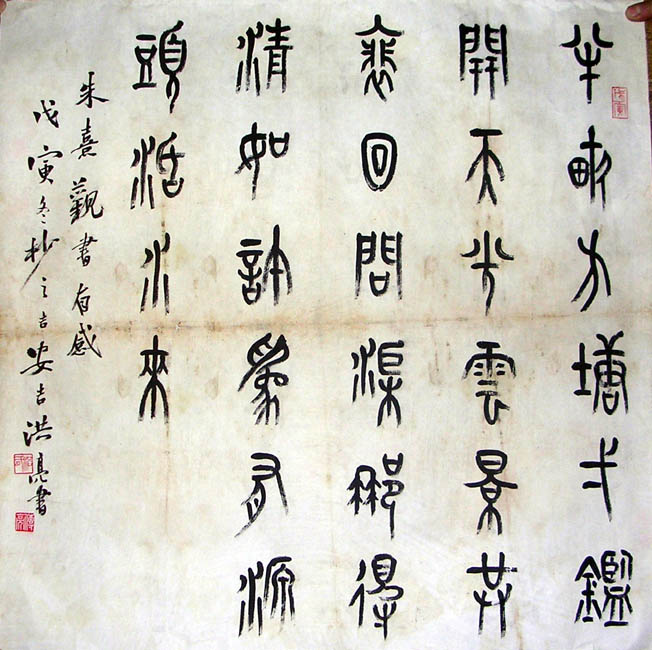 半畝方塘弌鑑
開天光雲景共
裵回問渠那得
清如許為有源
頭活水来
朱熹觀書有感
戊寅冬杪之吉安吉洪亮書